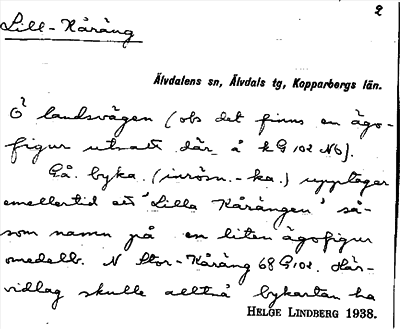 2
Lill-Kåräng
Älvdalens sn, Älvdals tg, Kopparbergs län.
Ö landsvägen (obs det finns en ägo-
figur utsatt där å kG 102 Nb).
Gå. byka. (inrösn.-ka.) upptager
emellertid ett 'Lilla Kårängen' så-
som namn på en liten ägofigur
omedelb. N Stor-Kåräng 68 G 102. Här-
vidlag skulle alltså bykartan ha
HELGE LINDBERG 1938.